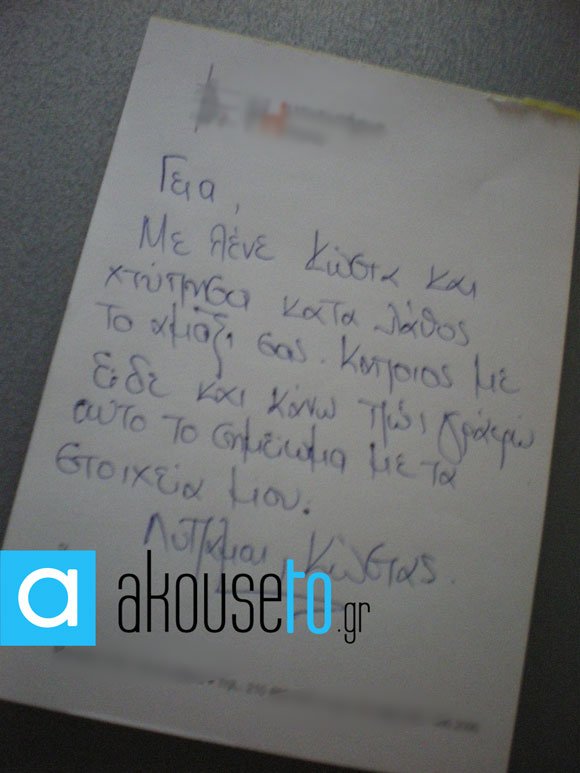 Γεια,
Με λένε Κώστα και
χτύπησα κατα λάθος
το αμάξι σας. Κάποιος με
είδε και κάνω πως γράφω
αυτο το σημείωμα με τα
στοιχεία μου.
Λυπάμαι, Κώστας.
a akouseto.gr